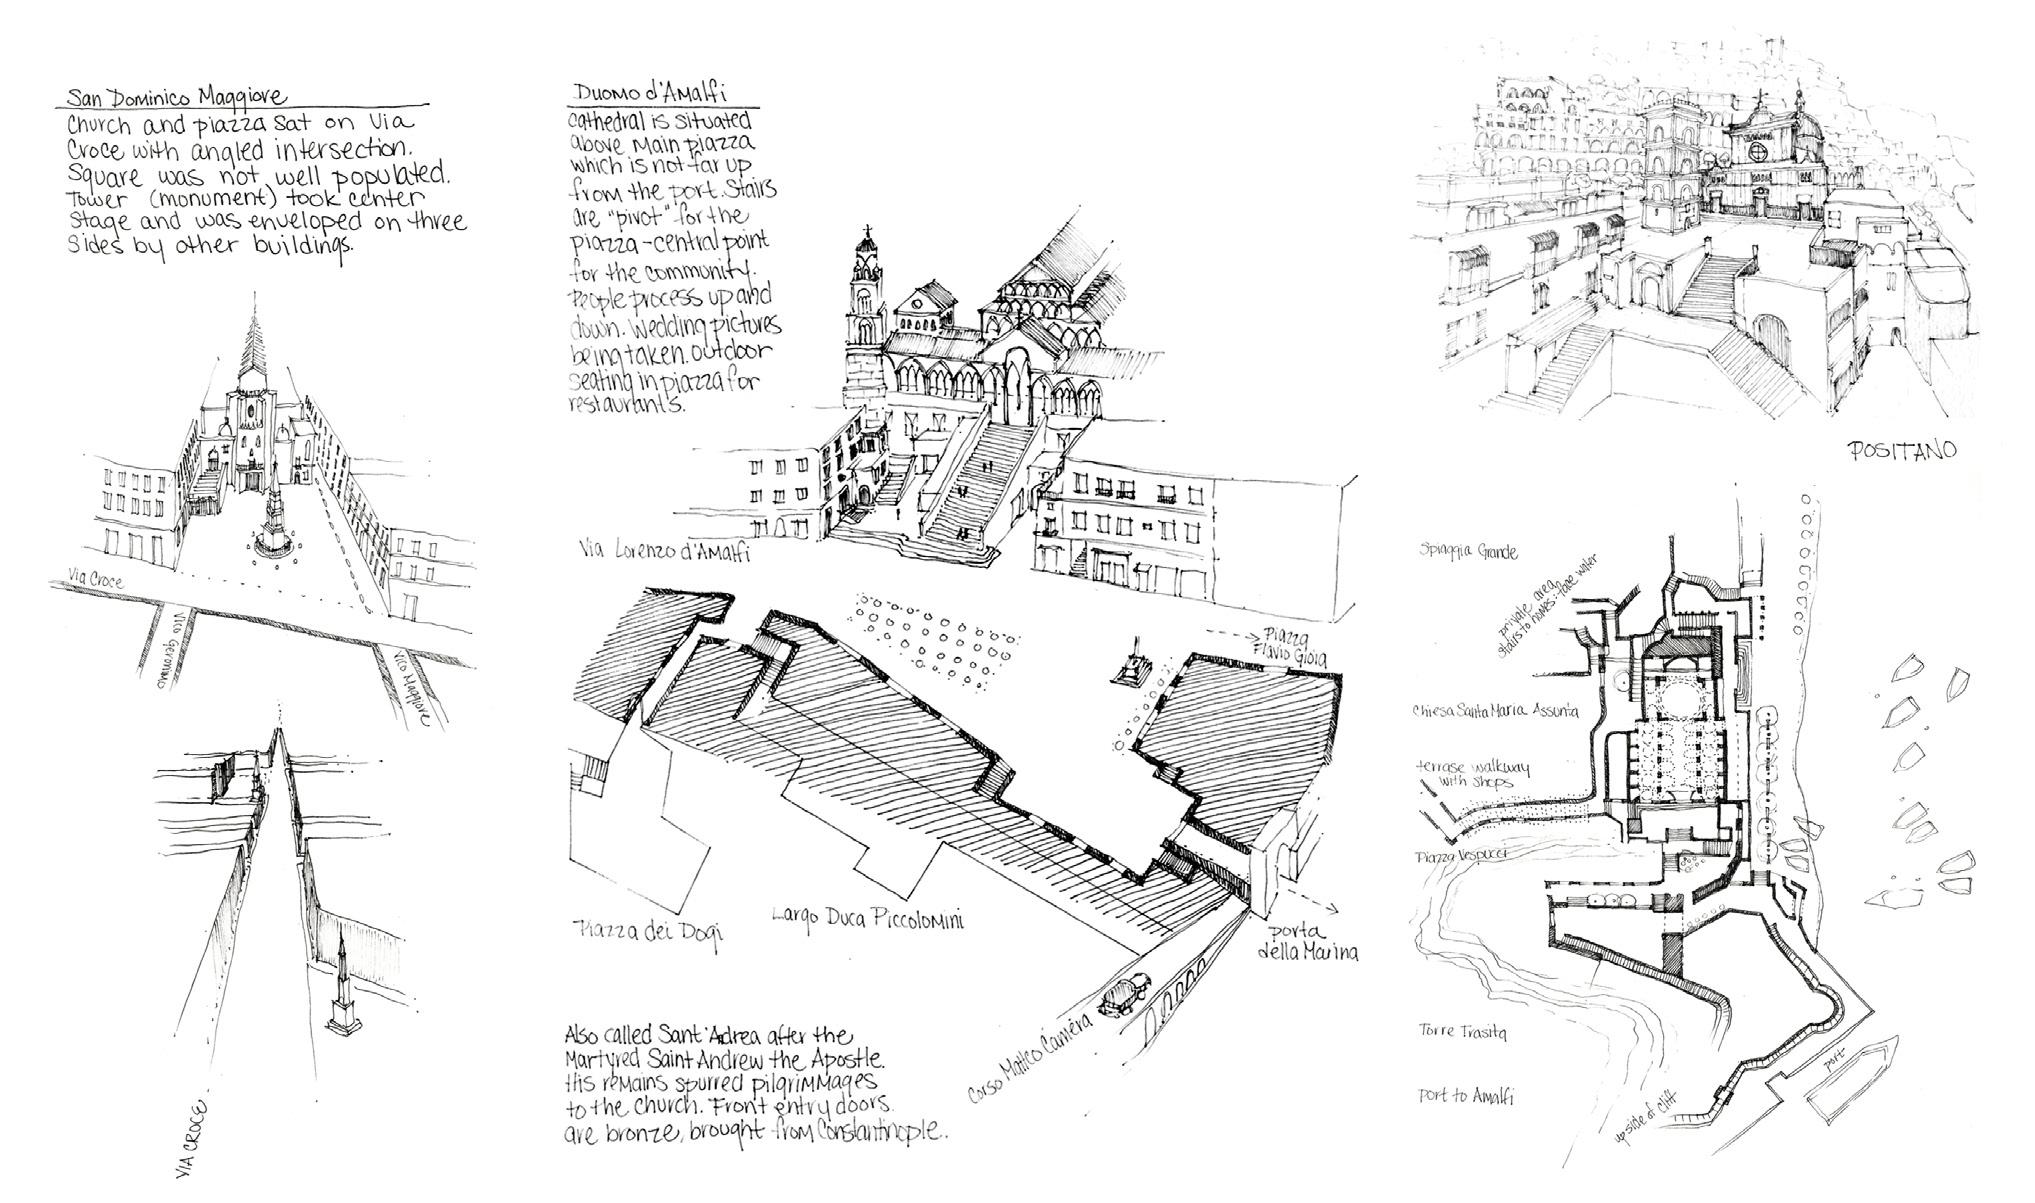 San Dominico Maggiore
Church and piazza sat on Via
Croce with angled intersection.
Square was not well populated.
Tower (monument) took center
stage and was enveloped on three
sides by other buildings.
Via Croce
Vico Geronimo
Vico Maggiore
VIA CROCE
Duomo d'Amalfi
Cathedral is situated
above main piazza
which is not far up
from the port. Stairs
are "pivot" for the
piazza - central point
for the community.
People process up and
down. Wedding pictures
being taken. Outdoor
seating in piazza for
restaurants.
Via Lorenzo d'Amalfi
Piazza
Flavio Gioia
Piazza dei Dogi
Largo Duca Piccolomini
porta
della Marina
Corso Matteo Camera
Also called Sant'Adrea after the
Martyred Saint Andrew the Apostle.
His remains spurred pilgrimmages
to the church. Front entry doors
are bronze, brought from Constantinople.
POSITANO
Spiaggia Grande
private area
stairs to homes: face water
Chiesa Santa Maria Assunta
terrase walkway
with shops
Piazza Vespucci
Torre Trasita
port to Amalfi
port
up side of cliff